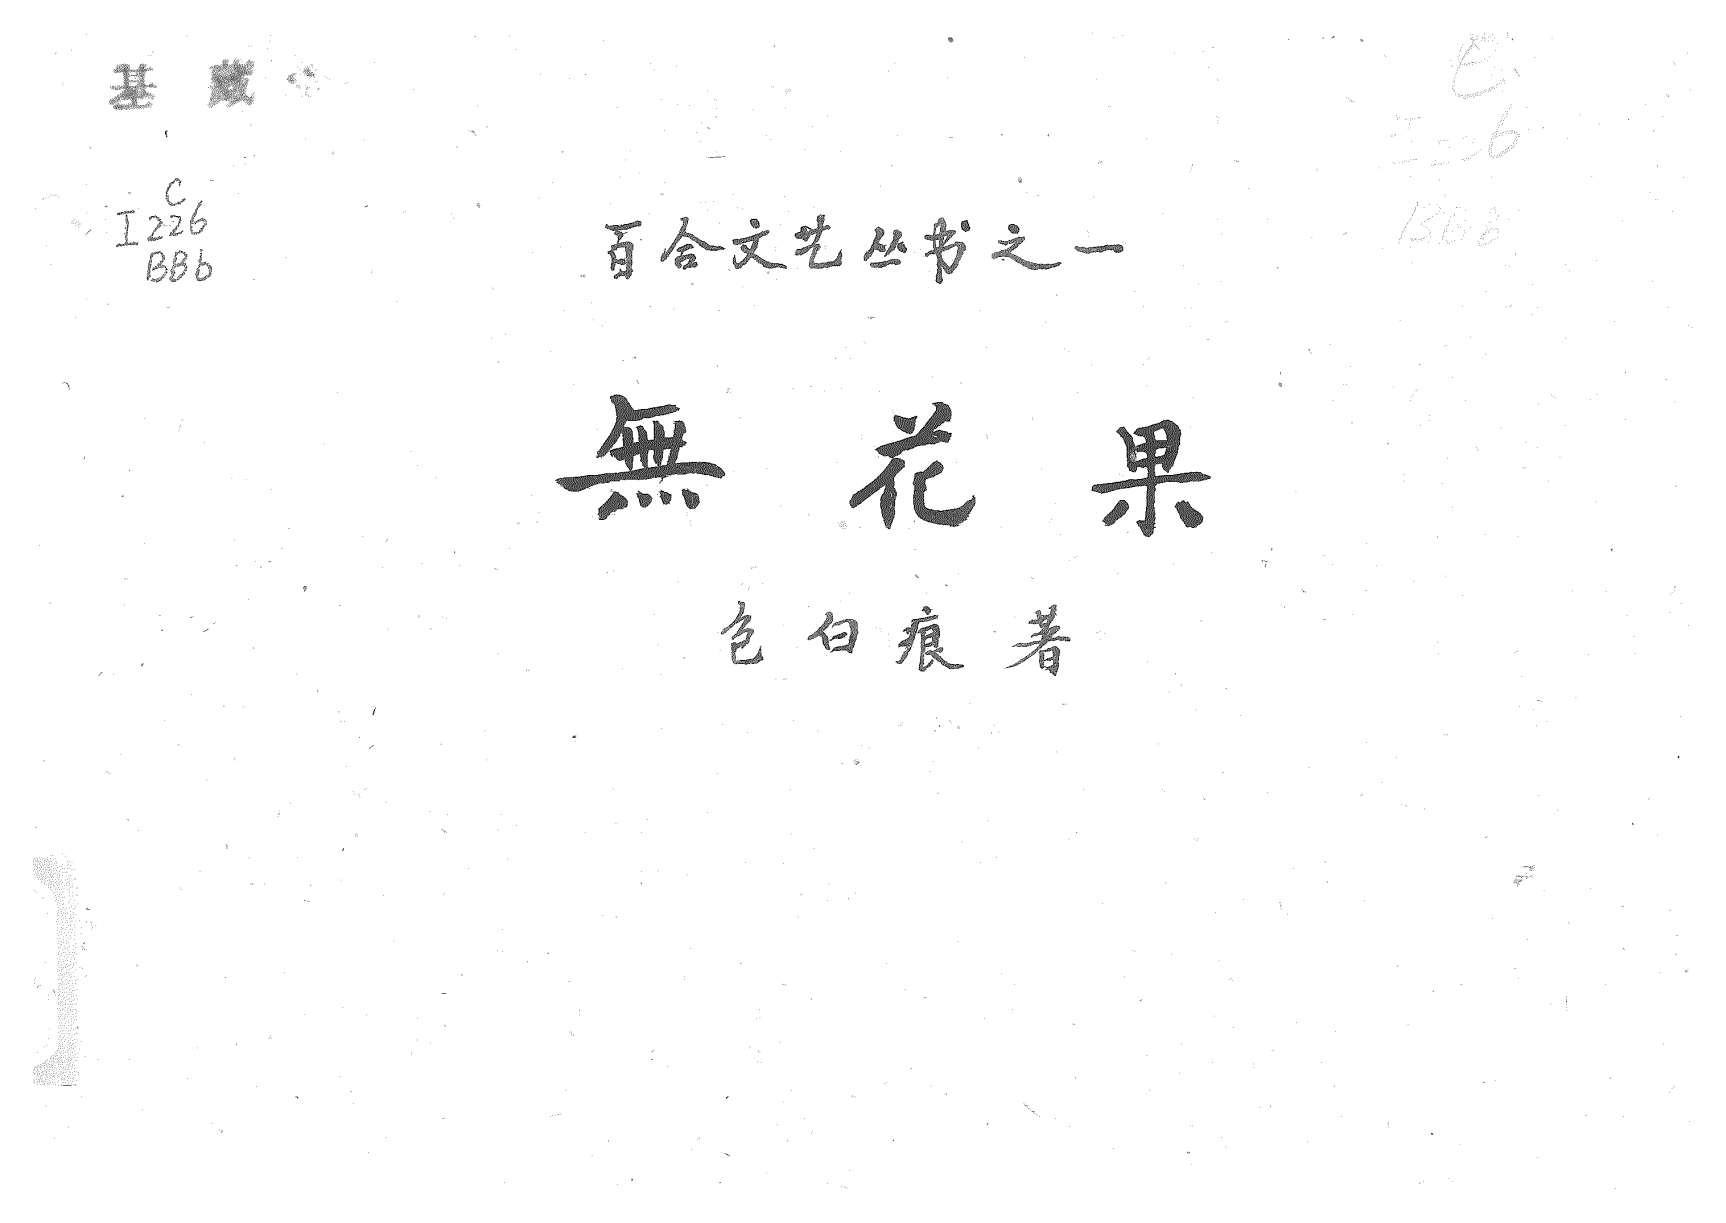 基藏
C
I226
BBb
C
I226
BBb
百合文艺丛书之一
無花果
色白痕著